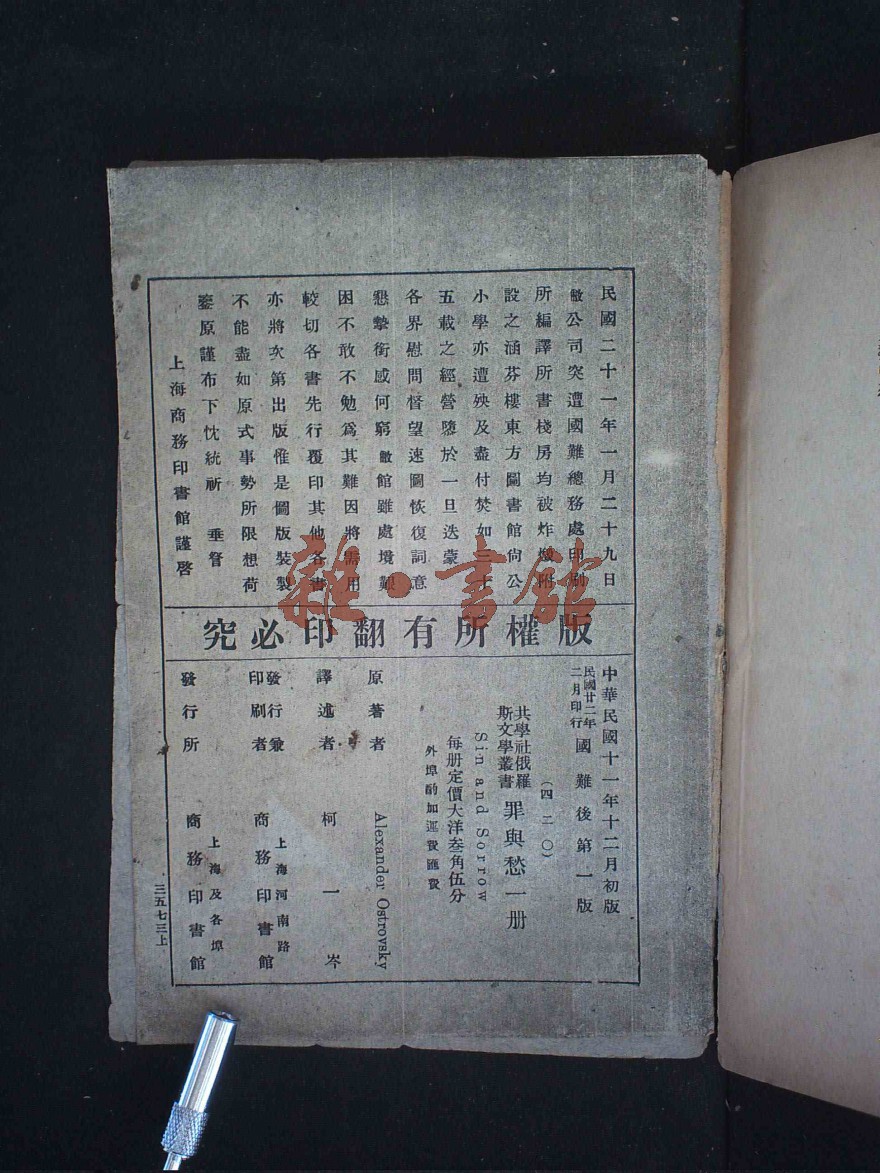 民國二十一年一月二十九日
敝公司突遭國難總務處印刷
所編譯所書棧房均被炸燬附
設之涵芬樓東方圖書館尙公
小學亦遭殃及盡付焚如三十
五載之經營隳於一旦迭蒙
各界慰問督望速圖恢復詞意
懇摯銜感何窮敝館雖處境艱
困不敢不勉爲其難因將需用
較切各書先行覆印其他各書
亦將次第出版惟是圖版裝製
不能盡如原式事勢所限想荷
鑒原謹布下忱統祈 垂詧
上海商務印書館謹啓
版權所有翻印必究
中華民國十一年十二月初版
民國廿二年二月印行 國難後第一版
(四二〇)
共學社俄羅斯文學叢書 罪與愁一册
Sin and Sorrow
每册定價大洋叁角伍分
外埠酌加運費匯費
原著者 Alexander Ostrovsky
譯述者 柯一岑
發行兼印刷者 上海河南路 商務印書館
發行所 上海及各埠 商務印書館
三五七三上
雜·書館